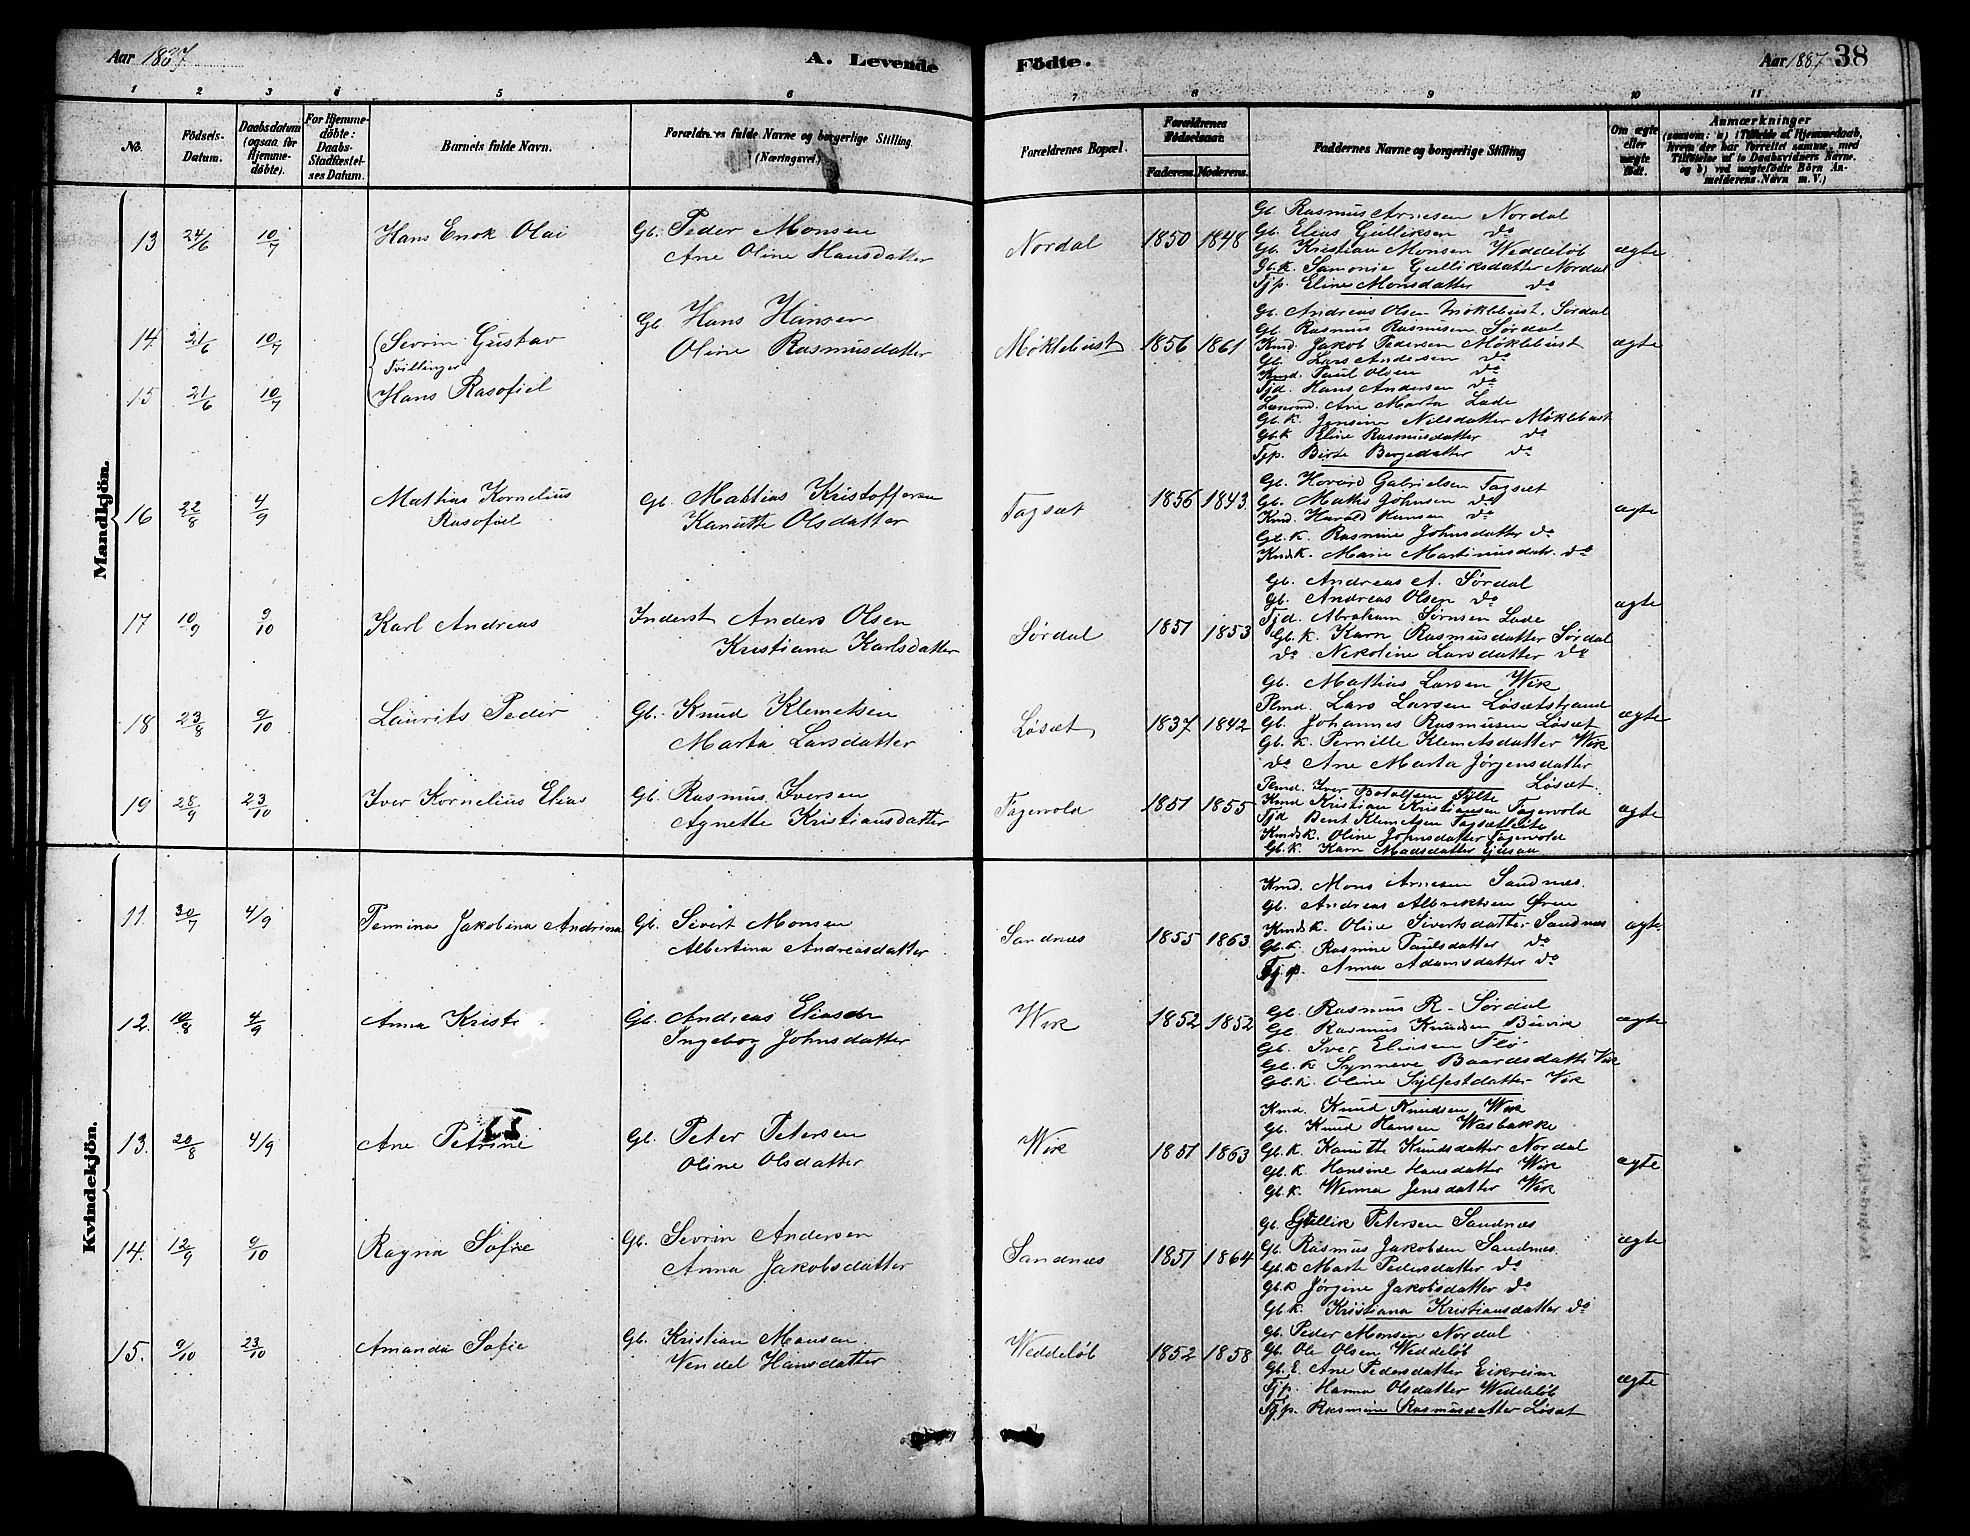 Aar 1887 A. Levende Fødte. Aar 1887 38
1 2 3 4 5 6 7 8 9 10 11
No. Fødsels-Datum. Daabsdatum (ogsaa for Hjemmedøbte). For Hjemmedøbte: Daabs-Stadfæstelses Datum. Barnets fulde Navn. Forældrenes fulde Navne og borgerlige Stilling (Næringsvei) Forældrenes Bopæl. Forældrenes Fødselsaar. Faderens. Moderens. Faddernes Navne og borgerlige Stilling Om ægte eller uægte født. Anmærkninger (saasom: a) i Tilfælde af Hjemmedaab, hvem der har forrettet samme, med Tilføielse af to Daabsvidners Navne. og b) ved uægtefødte Børn Anmelderens Navn m. V.)
Mandkjön.
13 24/6 10/7 Hans Enok Olai Gb. Peder Monsen
Ane Oline Hansdatter
Nordal 1850 1848 ægte
Gb. Rasmus Arnesen Nordal
Gb. Elias Gulliksen do
Gb. Kristian Monsen Weddeløb
Gb.k. Samonie Gulliksdatter Nordal
Tjp. Eline Monsdatter do
14. 21/6 10/7 Sevrin Gustav Gb. Hans Hansen
Tvillinger Oline Rasmusdatter
15 21/6 10/7 Hans Rasofiel
Møklebust 1856 1861 ægte
Gb. Andreas Olsen Møklebust. Sørdal
Gb. Rasmus Rasmusen Sørdal
Kmd. Jakob Pedersen Møklebust
Gb. Lars Andersen do
Kmd. Paul Olsen do
Tjd. Hans Andersen do
Ane Marta Lade
Gb.k. Jensine Nilsdatter Møklebust
Gb.k Eline Rasmusdatter do
Tjp. Birte Bergedatter do
16 22/8 4/9 Mathias Kornelius Gb. Mattias Kristoffersen
Rasofiel Kanutte Olsdatter
Fagsæt 1856 1843. ægte
Gb. Hovard Gabrielsen Fagsæt
Gb. Maths Johnsen do
Kmd. Harald Hansen do
Gb.k. Rasmine Johnsdatter do
Kmdk. Marie Martinusdatr. do
17 10/9 9/10 Karl Andreas Inderst Anders Olsen
Kristiana Karlsdatter
Sørdal 1851 1853 ægte
Gb. Andreas A. Sørdal
Gb. Andreas Olsen do
Tjd. Abraham Sørnsen Lade
Gb.k. Karn Rasmusdatter Sørdal
do Nikoline Larsdatter do
18 23/8 9/10 Laurits Peder Gb. Knud Klemetsen
Marta Larsdatter
Løsæt 1837 1842 ægte
Gb. Mattias Larsen Wik
Plmd. Lars Larsen Løsætstrand
Gb. Johannes Rasmusen Løsæt
Gb.k. Pernille Klemetsdatter Wik
do Ane Marta Jørgensdatter
Løsæt.
19 28/9 23/10 Iver Kornelius Elias Gb. Rasmus Iversen
Agnette Kristiansdatter
Fagervold 1851 1855 ægte
Plmd. Iver Botolfsen Sylte
Kmd Kristian Kristiansen Fagervold
Tjd Bent Klemetsen Fagsætlite
Kmdk. Oline Johnsdatter Fagervold
Gb.k. Karn Madsdatter
Kvindekjön.
11. 30/7 4/9 Pernina Jakobina Andrina Gb. Sivert Monsen
Albertina Andreasdatter
Sandnæs 1855 1863 ægte
Kmd. Mons Arnesen Sandnæs.
Gb. Andreas Albriktsen Øren
Kmdk. Oline Sivertsdatter Sandnæs
Gb.k. Rasmine Paulsdatter do
Tjp. Anna Adamsdatter do
12. 10/8 4/9 Anna Kristi Gb. Andreas Eliasen
Ingebog Johnsdatter
Wik 1852 1852 ægte
Gb. Rasmus R. Sørdal
Gb. Rasmus Knudsen Buvik
Gb. Iver Eliasen Flø
Gb.k Synneve Baardsdatter Wik
Gb.k. Oline Sylfestdatter Vik
13. 20/8 4/9 Ane Petrine Gb. Peter Petersen
Oline Olsdatter
Wik 1851 1863 ægte
Kmd. Knud Knudsen Wik
Gb. Knud Hansen Wasbakke
Gb.k. Kanutte Knudsdatter Nordal
Gb.k. Hansine Hansdatter Wik
Gb.k. Werma Jensdatter Wik
14. 12/9 9/10 Ragna Sofie Gb. Sevrin Andersen
Anna Jakobsdatter
Sandnæs 1851 1864 ægte
Gb. Gullik Petersen Sandnæs
Gb. Rasmus Jakobsen Sandnæs.
Gb.k Marte Pedersdatter do
Gb.k Jørgine Jakobsdatter do
Gb.k. Kristiana Kristiansdatter do
15. 9/10 23/10 Amanda Sofie Gb. Kristian Monsen
Vendel Hansdatter
Weddeløb 1852 1858 ægte
Gb. Peder Monsen Nordal
Gb. Ole Olsen Weddeløb
Gb.E. Ane Pedersdatter Eikreim
Tjp. Hanna Olsdatter Weddeløb
Tjp. Rasmine Rasmusdatter Løsæt